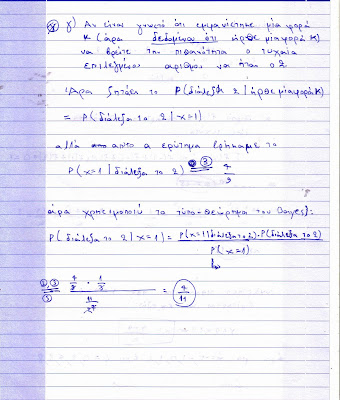 γ) Αν είναι γνωστό ότι εμφανίστηκε μία φορά
Κ (άρα δεδομένου ότι ήρθε μία φορά Κ)
να βρείτε την πιθανότητα ο τυχαία
επιλεγμένος αριθμός να ήταν ο 2
Άρα ζητάει το P(διάλεξα 2 | ήρθε μία φορά Κ)
= P(διάλεξα το 2 | x=1)
αλλά από το α ερώτημα βρήκαμε το
P(x=1 | διάλεξα το 2) = 4/9
άρα χρησιμοποιώ το τύπο-θεώρημα του Bayes):
P(διάλεξα το 2 | x=1) = P(x=1|διάλεξα το 2)·P(διάλεξα το 2)
P(x=1)
4/9 · 1/3
= 4/11
11/27